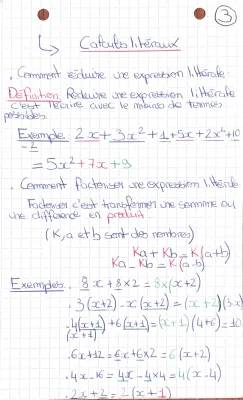 ③
↳ Calculs littéraux
. Comment réduire une expression littérale:
Définition Réduire une expression littérale
c'est l'écrire avec le moins de termes
possibles.
Exemple 2x+3x²+1+5x+2x²+10
-2
=5x²+7x+9
. Comment factoriser une expression littérale
Factoriser c'est transformer une somme ou
une différence en produit
(K, a et b sont des nombres)
Ka+Kb=K(a+b)
Ka-Kb=K(a-b)
Exemples. 8x+8×2=8×(x+2)
. 3(x+2)-x(x+2)=(x+2)(3-x)
. 4(x+1)+6(x+1)=(x+1)(4+6)=10
(x+1)
. 6x+12=6x+6×2=6(x+2)
. 4x-16=4x-4×4=4(x-4)
. 2x+2=2(x+1)